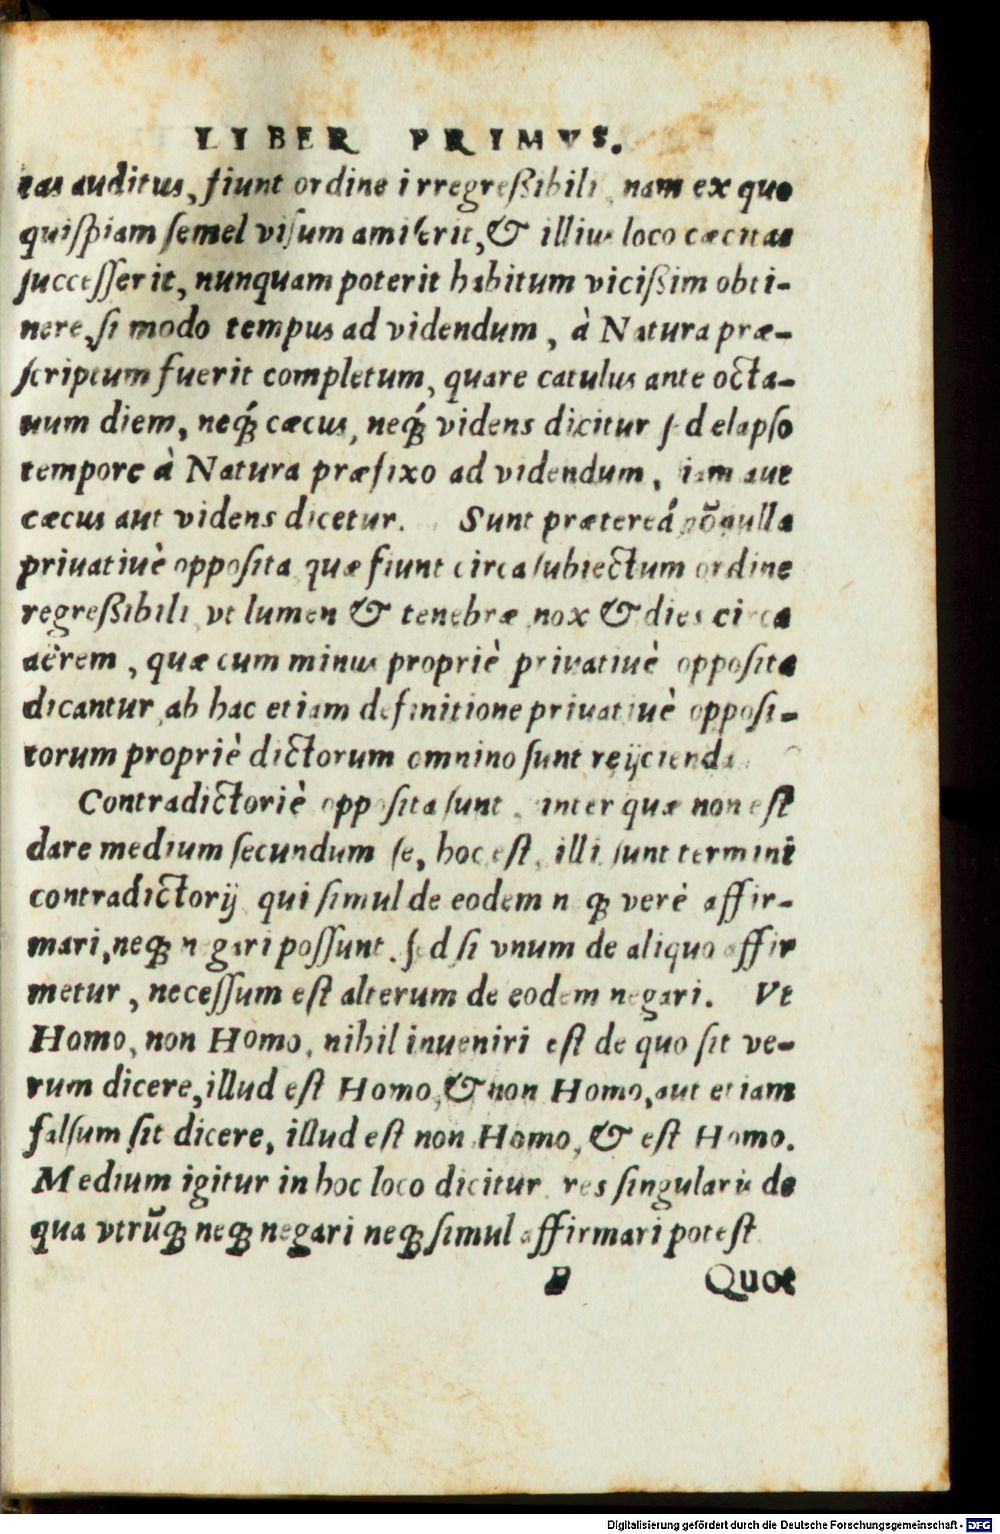 LIBER PRIMVS.
tas auditus, fiunt ordine irregreßibili, nam ex quo
quiſpiam ſemel viſum amiſerit, & illius loco cæcitas
ſucceſſerit, nunquam poterit habitum vicißim obti-
nere, ſi modo tempus ad videndum, à Natura præ-
ſcriptum fuerit completum, quare catulus ante octa-
uum diem, neq́; cæcus, neq́; videns dicitur ſed elapſo
tempore à Natura præfixo ad videndum, iam aut
cæcus aut videns dicetur. Sunt prætereá nõnulla
priuatiuè oppoſita quæ fiunt circa ſubiectum ordine
regreßibili, vt lumen & tenebræ nox & dies circa
aërem, quæ cum minus propriè priuatiuè oppoſita
dicantur, ab hac etiam definitione priuatiuè oppoſi-
torum propriè dictorum omnino ſunt reijcienda.
Contradictoriè oppoſita ſunt, inter quæ non eſt
dare medium ſecundum ſe, hoc eſt, illi ſunt termini
contradictorij qui ſimul de eodem neq; verè affir-
mari, neq; negari poſſunt. ſed ſi vnum de aliquo affir
metur, neceſſum eſt alterum de eodem negari. Vt
Homo, non Homo, nihil inueniri eſt de quo ſit ve-
rum dicere, illud eſt Homo, & non Homo, aut etiam
falſum ſit dicere, illud eſt non Homo, & eſt Homo.
Medium igitur in hoc loco dicitur res ſingularis de
qua vtrũq; neq; negari neq; ſimul affirmari poteſt
B Quot
Digitalisierung gefördert durch die Deutsche Forschungsgemeinschaft - DFG